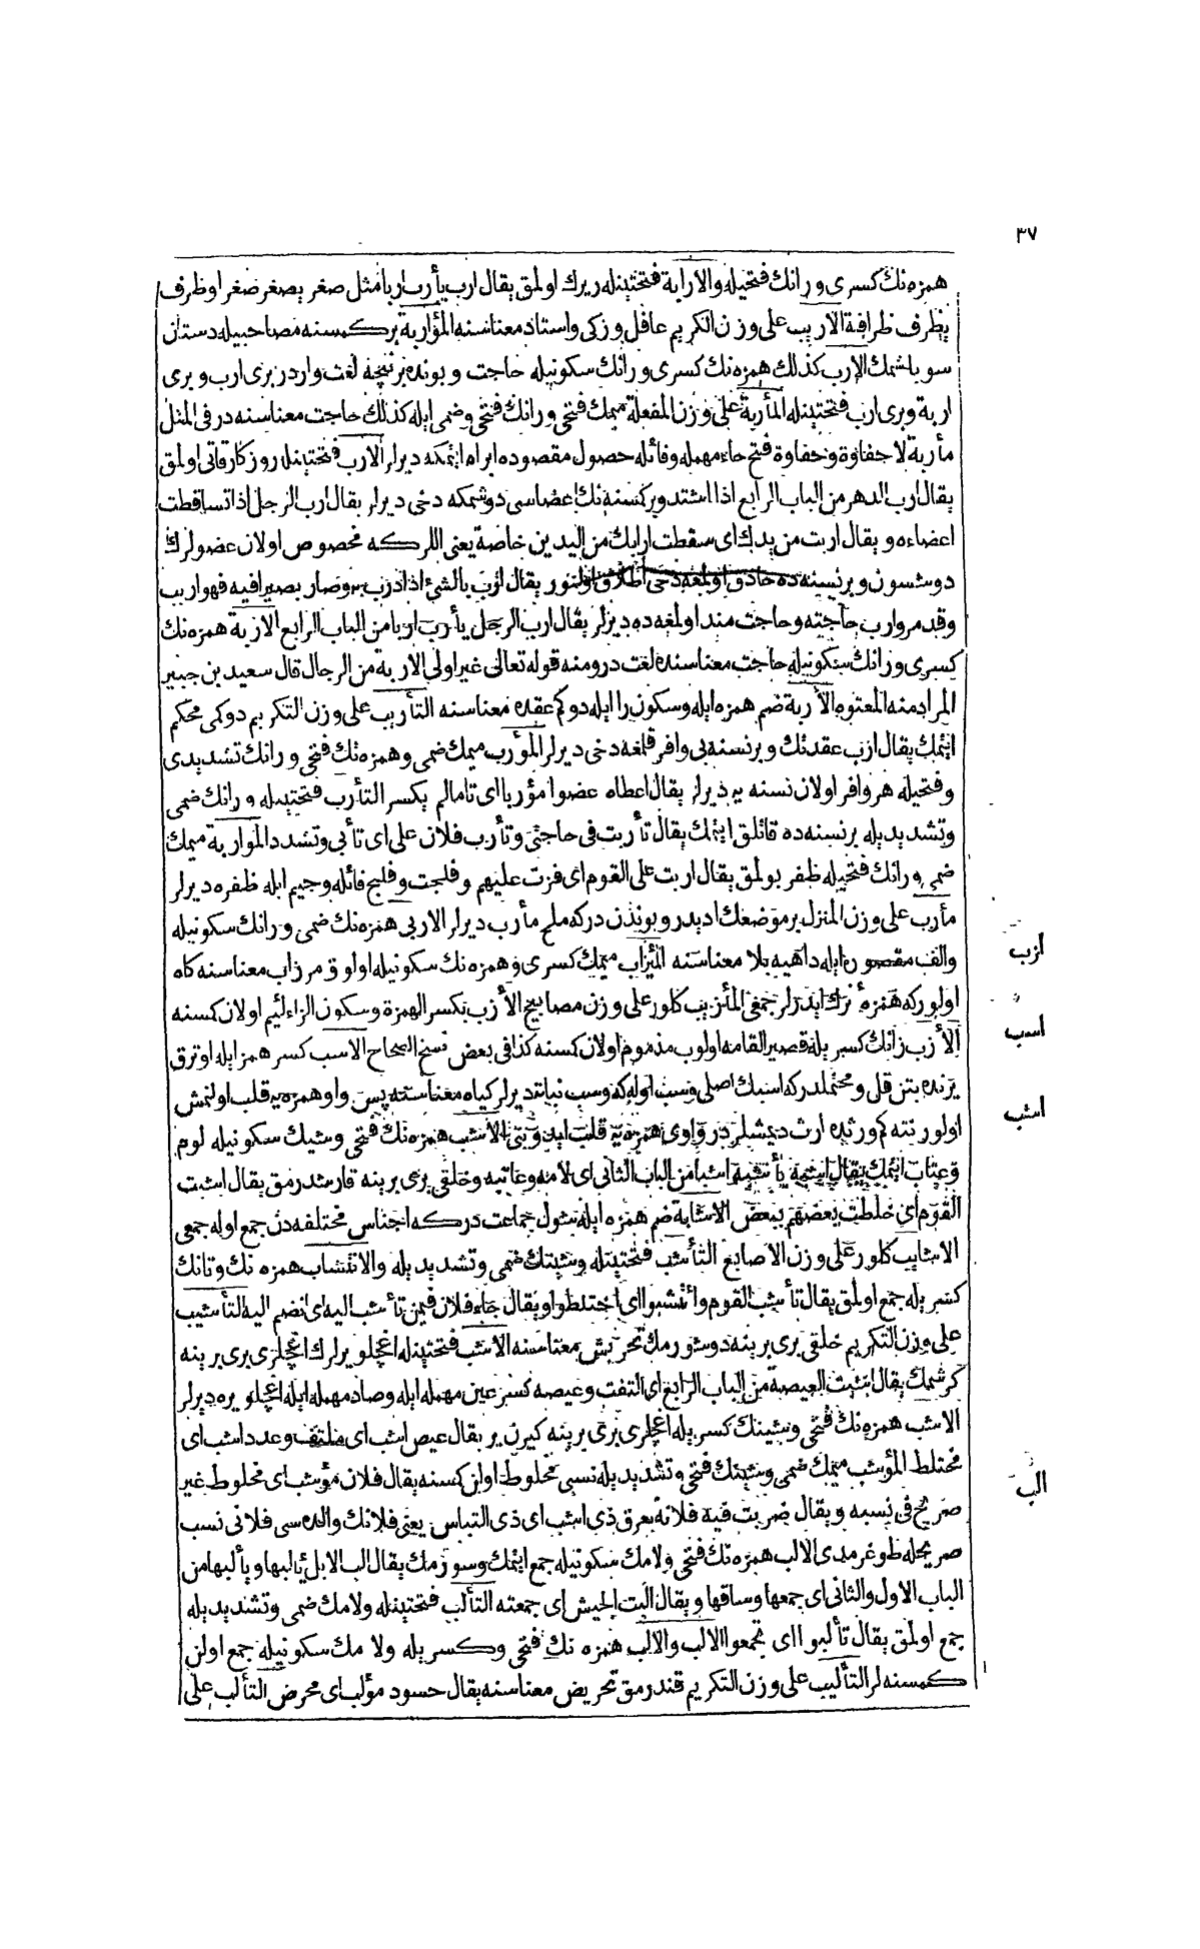 ٣٧
همزه نك كسرى و رانك فتحيله والارابة فتحتينله زيرك اولمق يقال ارب يأرب اربا مثل صغر يصغر صغر اوظرف
يظرف ظرافة الاريب على وزن الكريم عاقل و زكى واستاد معناسنه المؤاربة بر كمسنه مصاحبيله دستان
سوباشمك الإرب كذلك همزه نك كسرى و رانك سكونيله حاجت و بونده بر نيچه لغت واردر برى ارب و برى
اربة و برى ارب فتحتينله المأربة على وزن المفعلة ميمك فتحى و رانك فتحى و ضمى ايله كذلك حاجت معناسنه در فى المثل
مأربة لا حفاوة و حفاوة فتح حاء مهمله و فائله حصول مقصوده ابرام ايتمكه ديرلر الارب فتحتينله روزكار قاتى اولمق
يقال ارب الدهر من الباب الرابع اذا اشتد و بر كسنه نك اعضاسى دوشمكه دخى ديرلر يقال ارب الرجل اذا تساقطت
اعضاءه و يقال اربت من يدك اى سقطت ارابك من اليدين خاصة يعنى اللركه مخصوص اولان عضولرك
دوشسون و بر نسنه ده حاذق اولمغه دخى اطلاق اولنور يقال ارب بالشئ اذا درب به وصار بصيرا فيه فهو اريب
وقد مر وارب حاجته و حاجت مند اولمغه ده ديرلر يقال ارب الرجل يأرب اربا من الباب الرابع الاربة همزه نك
كسرى و رانك سكونيله حاجت معناسنده لغت در و منه قوله تعالى غير اولى الاربة من الرجال قال سعيد بن جبير
المراد منه المعتوه الأربة ضم همزه ايله و سكون را ايله دوكم عقده معناسنه التأريب على وزن التكريم دوكمى محكم
ايتمك يقال ارب عقدتك و بر نسنه يى وافر قلمغه دخى ديرلر المؤرب ميمك ضمى و همزه نك فتحى و رانك تشديدى
و فتحيله هر وافر اولان نسنه يه ديرلر يقال اعطاه عضوا مؤربا اى تاما لم يكسر التأرب فتحتينله و رانك ضمى
و تشديديله بر نسنه ده قاتلق ايتمك يقال تأربت فى حاجتى و تأرب فلان على اى تأبى و تشدد الموارבة ميمك
ضمى و رانك فتحيله ظفر بولمق يقال اربت على القوم اى فزت عليهم و فلجت و فلج فائله و جيم ايله ظفره ديرلر
مأرب على وزن المنزل بر موضعك اديدر و بوندن در كه ملح مأرب ديرلر الاربى همزه نك ضمى و رانك سكونيله
والف مقصوره ايله داهيه بلا معناسنه المئزاب ميمك كسرى و همزه نك سكونيله اولوق مرزاب معناسنه كاه
اولور كه همزه ترك ايدرلر جمعى المآزيب كلور على وزن مصابيح الأزب بكسر الهمزة و سكون الزاء لئيم اولان كسنه
الأزب زانك كسريله قصير القامه اولوب مذموم اولان كسنه كذا فى بعض نسخ الصحاح الاسب كسر همز ايله اوترق
يرنده بتن قل و محتملدر كه اسبك اصلى وسب اوله كه وسب نباتد ديرلر كياه معناسنه پس واو همزه يه قلب اولنمش
اولور نته كم ورثده ارث ديمشلردر واوى همزه يه قلب ايدوبنى الاشب همزه نك فتحى و شينك سكونيله لوم
و عتاب ايتمك يقال اشبه يأشبه اشبا من الباب الثانى اى لامه و عاتبه و خلقى برى برينه قارشدرمق يقال اشبت
القوم اى خلطت بعضهم ببعض الاشابة ضم همزه ايله شول جماعت در كه اجناس مختلفه دن جمع اوله جمعى
الاشايب كلور على وزن الاصابع التأشب فتحتينله و شينك ضمى و تشديديله والائتشاب همزه نك و تانك
كسريله جمع اولمق يقال تأشب القوم وائتشبوا اى اختلطوا و يقال جاء فلان فيمن تأشب اليه اى انضم اليه التأشيب
على وزن التكريم خلقى برى برينه دوشورمك تحريش معناسنه الاشب فتحتينله اغچلو يرلرك اغچلرى برى برينه
كرشمك يقال اشبت العيصة من الباب الرابع اى التفت و عيصه كسر عين مهمله ايله و صاد مهمله ايله اغچلو يره ديرلر
الاشب همزه نك فتحى و شينك كسريله اغچلرى برى برينه كيرن ير يقال عيص اشب اى ملتف و عدد اشب اى
مختلط المؤشب ميمك ضمى و شينك فتحى و تشديديله نسبى مخلوط اولن كسنه يقال فلان مؤشب اى مخلوط غير
صريح فى نسبه و يقال ضربت فيه فلانة بعرق ذى اشب اى ذى التباس يعنى فلانك والده سى فلانى نسب
صريحله طوغرمدى الالب همزه نك فتحى و لامك سكونيله جمع ايتمك و سورمك يقال الب الابل يألبها و يألبها من
الباب الاول والثانى اى جمعها و ساقها و يقال البت الجيش اى جمعته التألب فتحتينله و لامك ضمى و تشديديله
جمع اولمق يقال تألبوا اى تجمعوا الالب والالب همزه نك فتحى و كسريله و لامك سكونيله جمع اولن
كمسنه لر التأليب على وزن التكريم قندرمق تحريض معناسنه يقال حسود مؤلب اى محرض التألب على
ازب
اسب
اشب
الب